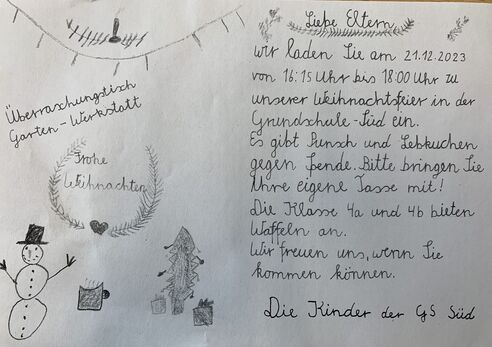 Überraschungstisch
Garten-Werkstatt
Frohe
Weihnachten
Liebe Eltern
wir laden Sie am 21.12.2023
von 16:15 Uhr bis 18:00 Uhr zu
unserer Weihnachtsfeier in der
Grundschule-Süd ein.
Es gibt Punsch und Lebkuchen
gegen Spende. Bitte bringen Sie
Ihre eigene Tasse mit!
Die Klasse 4a und 4b bieten
Waffeln an.
Wir freuen uns, wenn Sie
kommen können.
Die Kinder der GS Süd